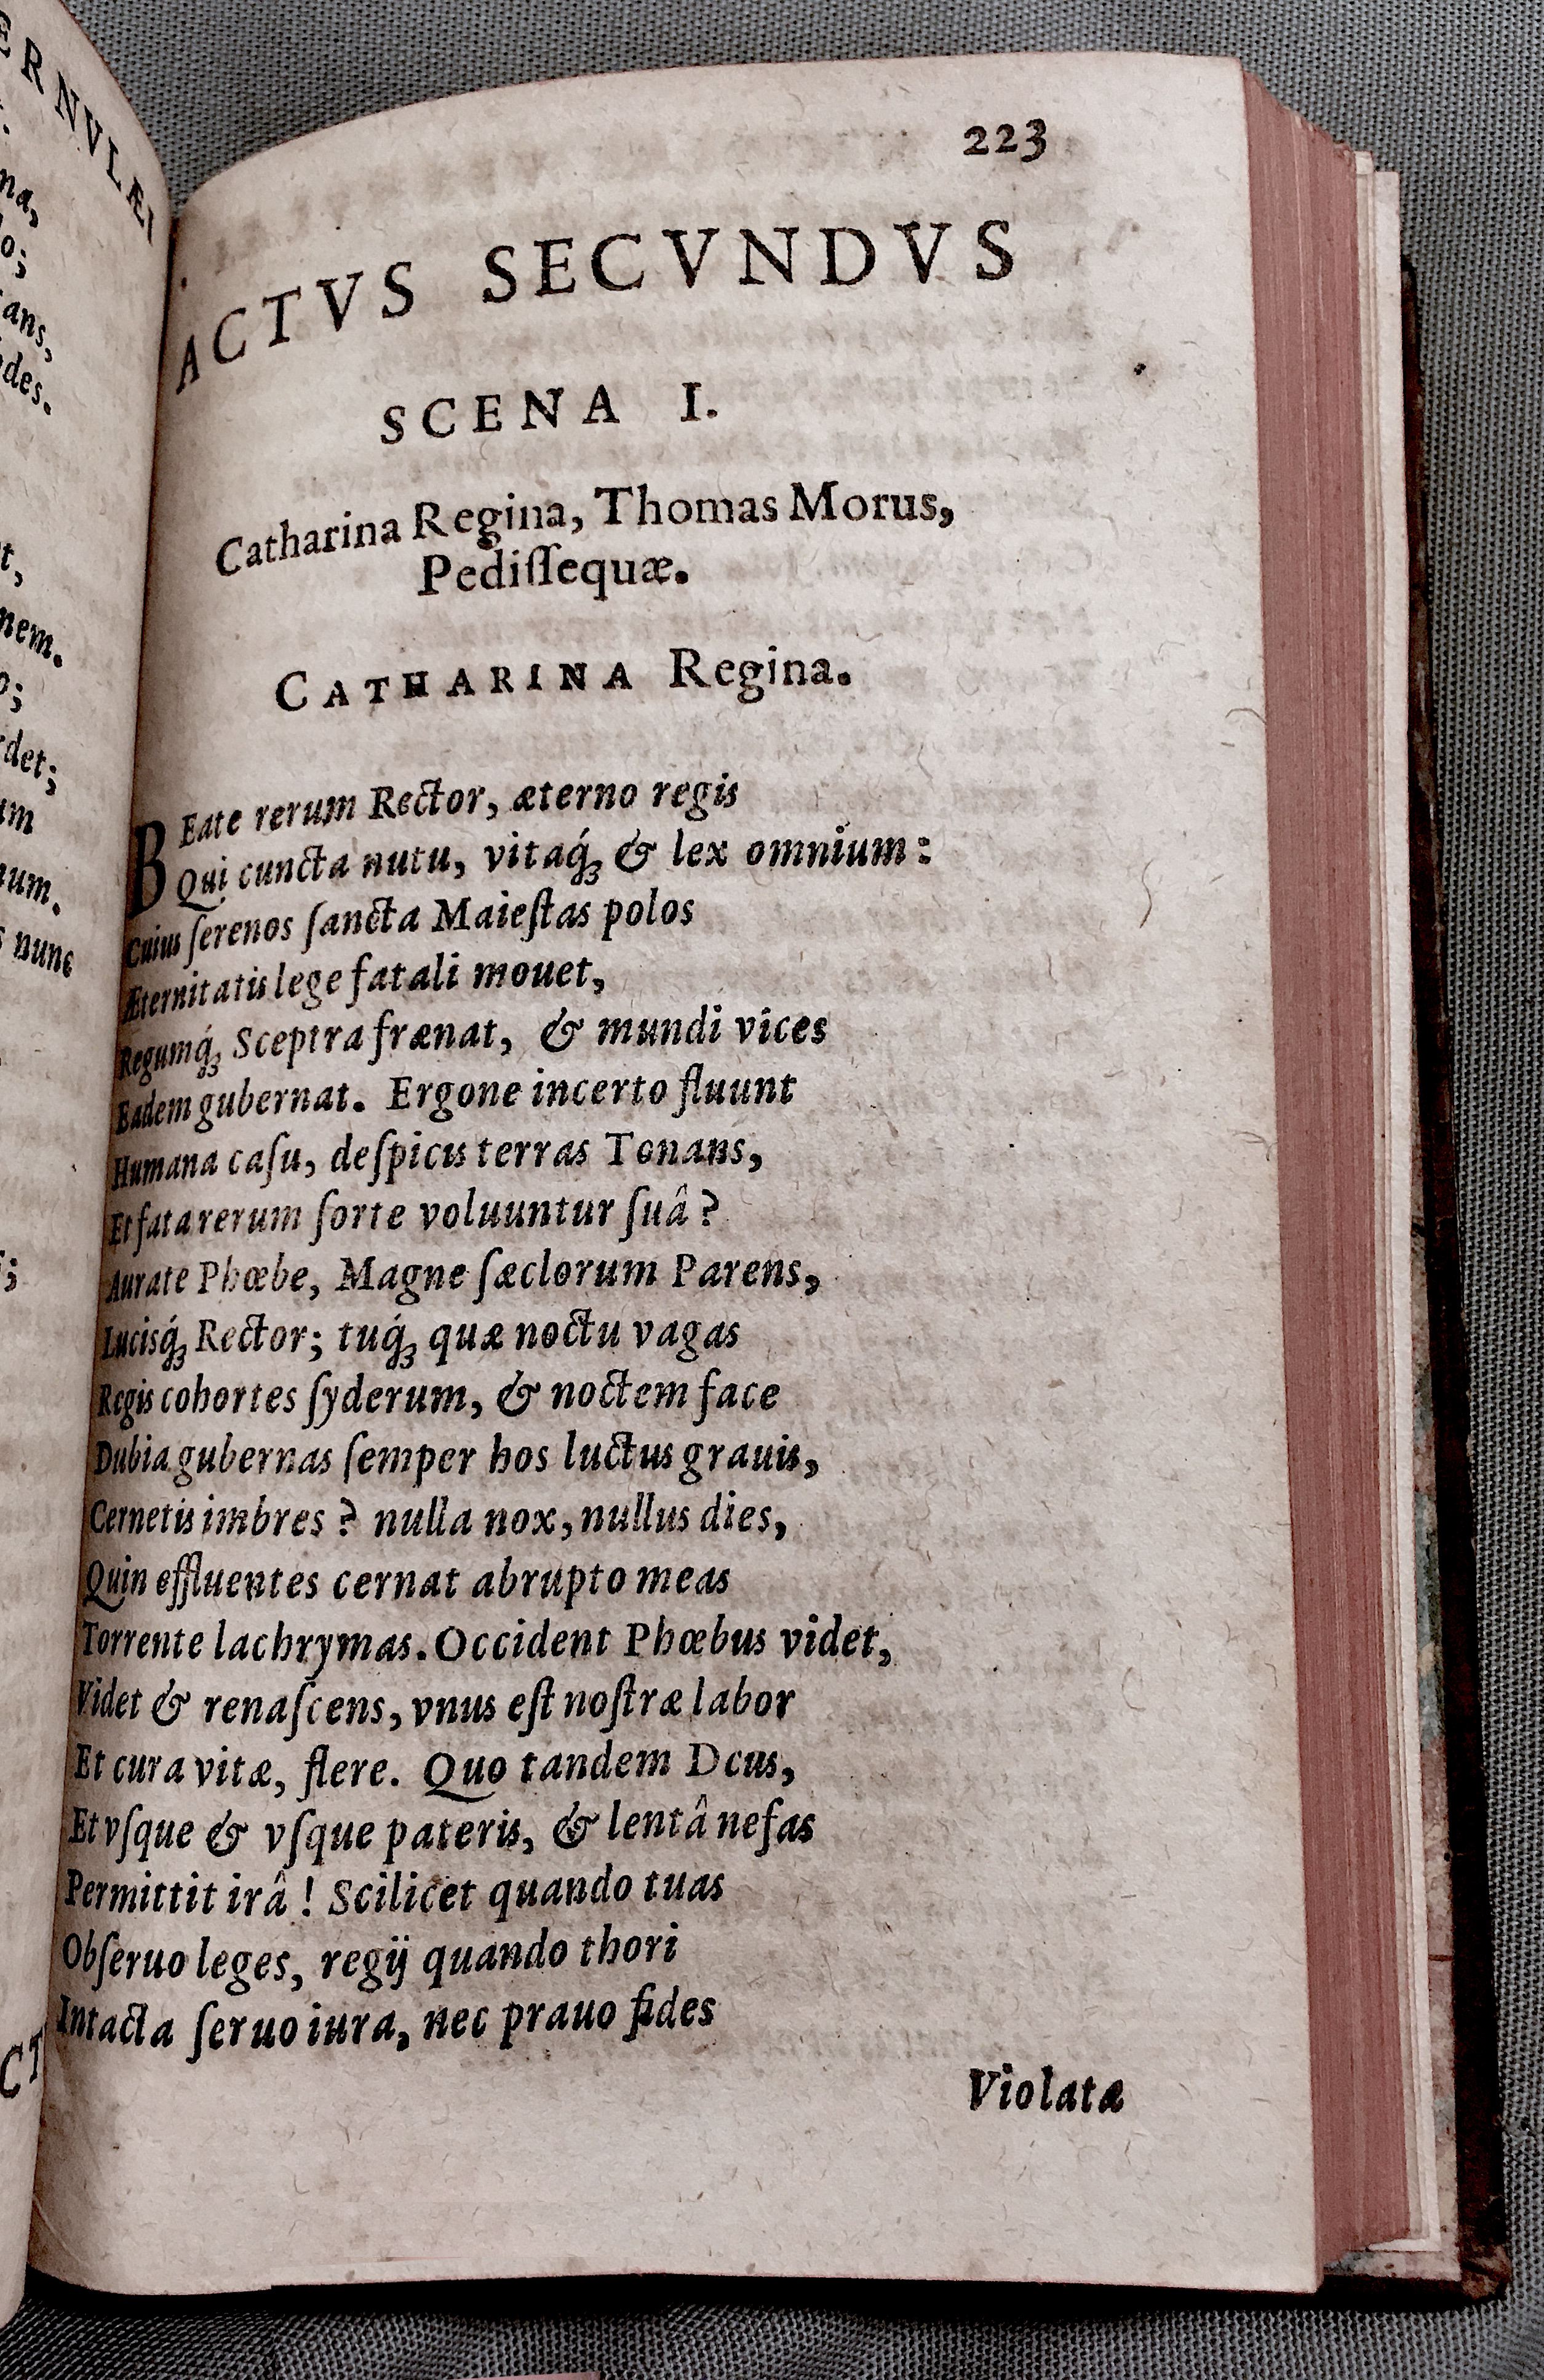 ERNVLÆI
na,
lo;
ans,
des.
t,
nem.
o;
rdet;
um
num.
nunc
;
CT
223
ACTVS SECVNDVS
SCENA I.
Catharina Regina, Thomas Morus,
Pediſſequæ.
CATHARINA Regina.
BEate rerum Rector, æterno regis
Qui cuncta nutu, vitaq́ꝫ & lex omnium:
Cuius ſerenos ſancta Maieſtas polos
Æternitatis lege fatali mouet,
Regumq́ꝫ Sceptra frænat, & mundi vices
Eadem gubernat. Ergone incerto fluunt
Humana caſu, deſpicis terras Tonans,
Et fata rerum ſorte voluuntur ſuâ?
Aurate Phœbe, Magne ſæclorum Parens,
Lucisq́ꝫ Rector; tuq́ꝫ quæ noctu vagas
Regis cohortes ſyderum, & noctem face
Dubia gubernas ſemper hos luctus grauis,
Cernetis imbres? nulla nox, nullus dies,
Quin effluentes cernat abrupto meas
Torrente lachrymas. Occident Phœbus videt,
Videt & renaſcens, vnus eſt noſtræ labor
Et cura vitæ, flere. Quo tandem Dcus,
Et vſque & vſque pateris, & lentâ nefas
Permittit irâ! Scilicet quando tuas
Obſeruo leges, regij quando thori
Intacta ſeruo iura, nec prauo fides
Violatæ